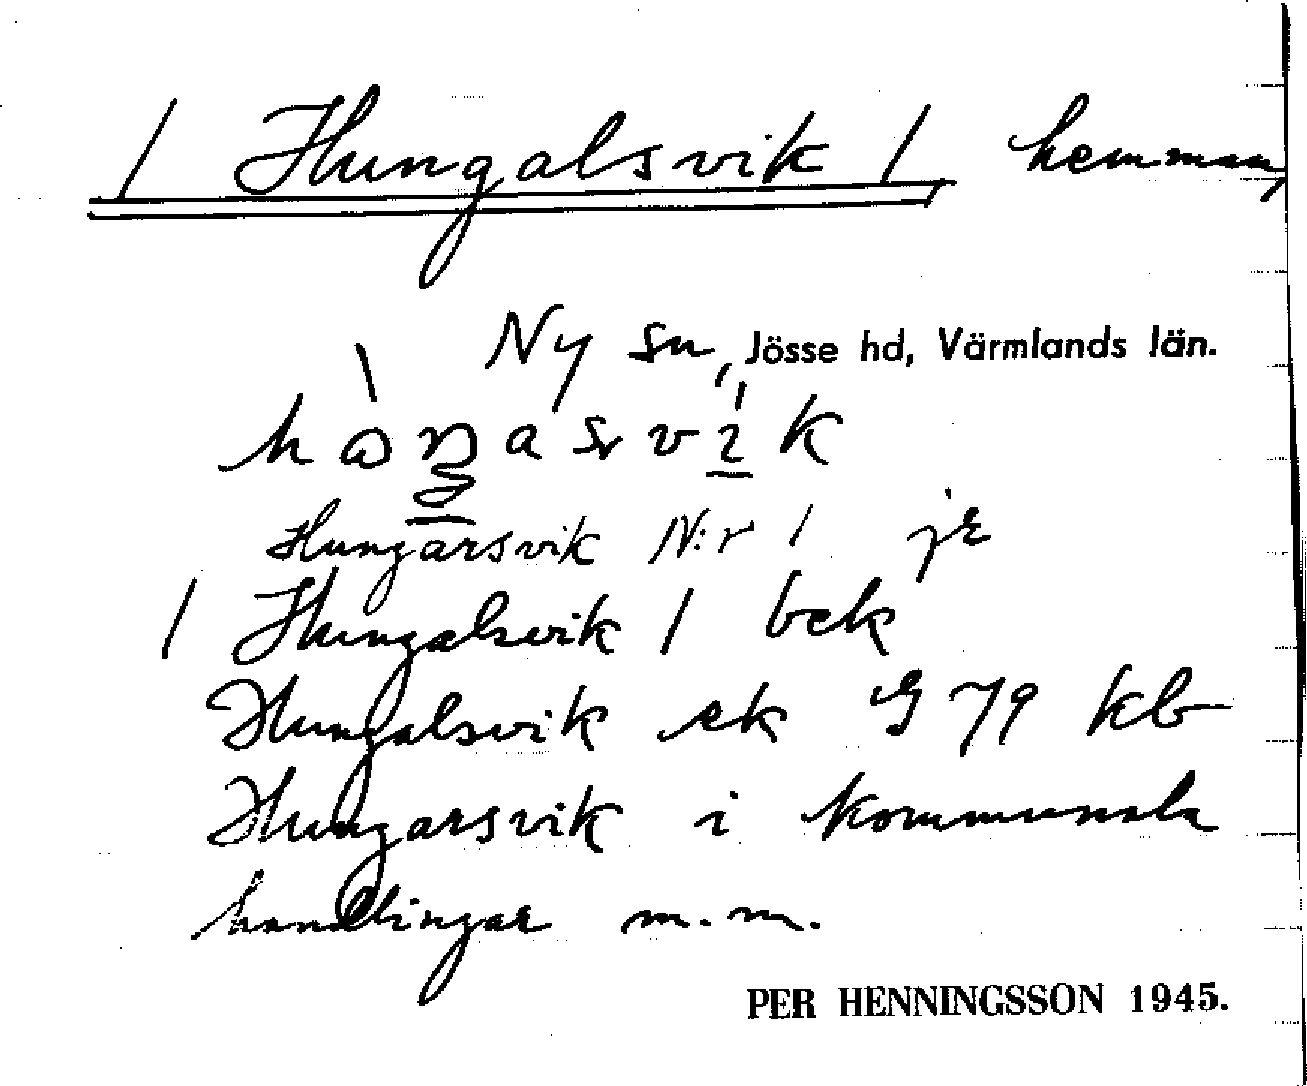 / Hungalsvik / hemman,
Ny sn, Jösse hd, Värmlands län.
Hungarsvik N:r 1 jr
/ Hungalsvik / bek
Hungalsvik ek G 79 kb
Hungarsvik i kommunala
handlingar m.m.
PER HENNINGSSON 1945.